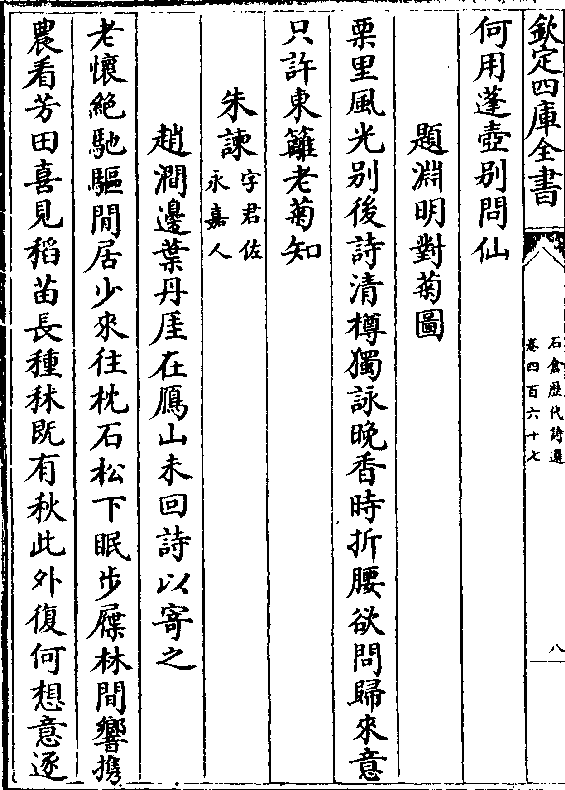 欽定四庫全書
石倉歷代詩選
卷四百六十七
八
何用蓬壺別問仙
題淵明對菊圖
栗里風光別後詩清樽獨詠晚香時折腰欲問歸來意
只許東籬老菊知
朱諫字君佐永嘉人
趙澗邊葉丹厓在鴈山未回詩以寄之
老懷絶馳驅閒居少來往枕石松下眠步屧林間響携
農看芳田喜見稻苗長種秫既有秋此外復何想意逐